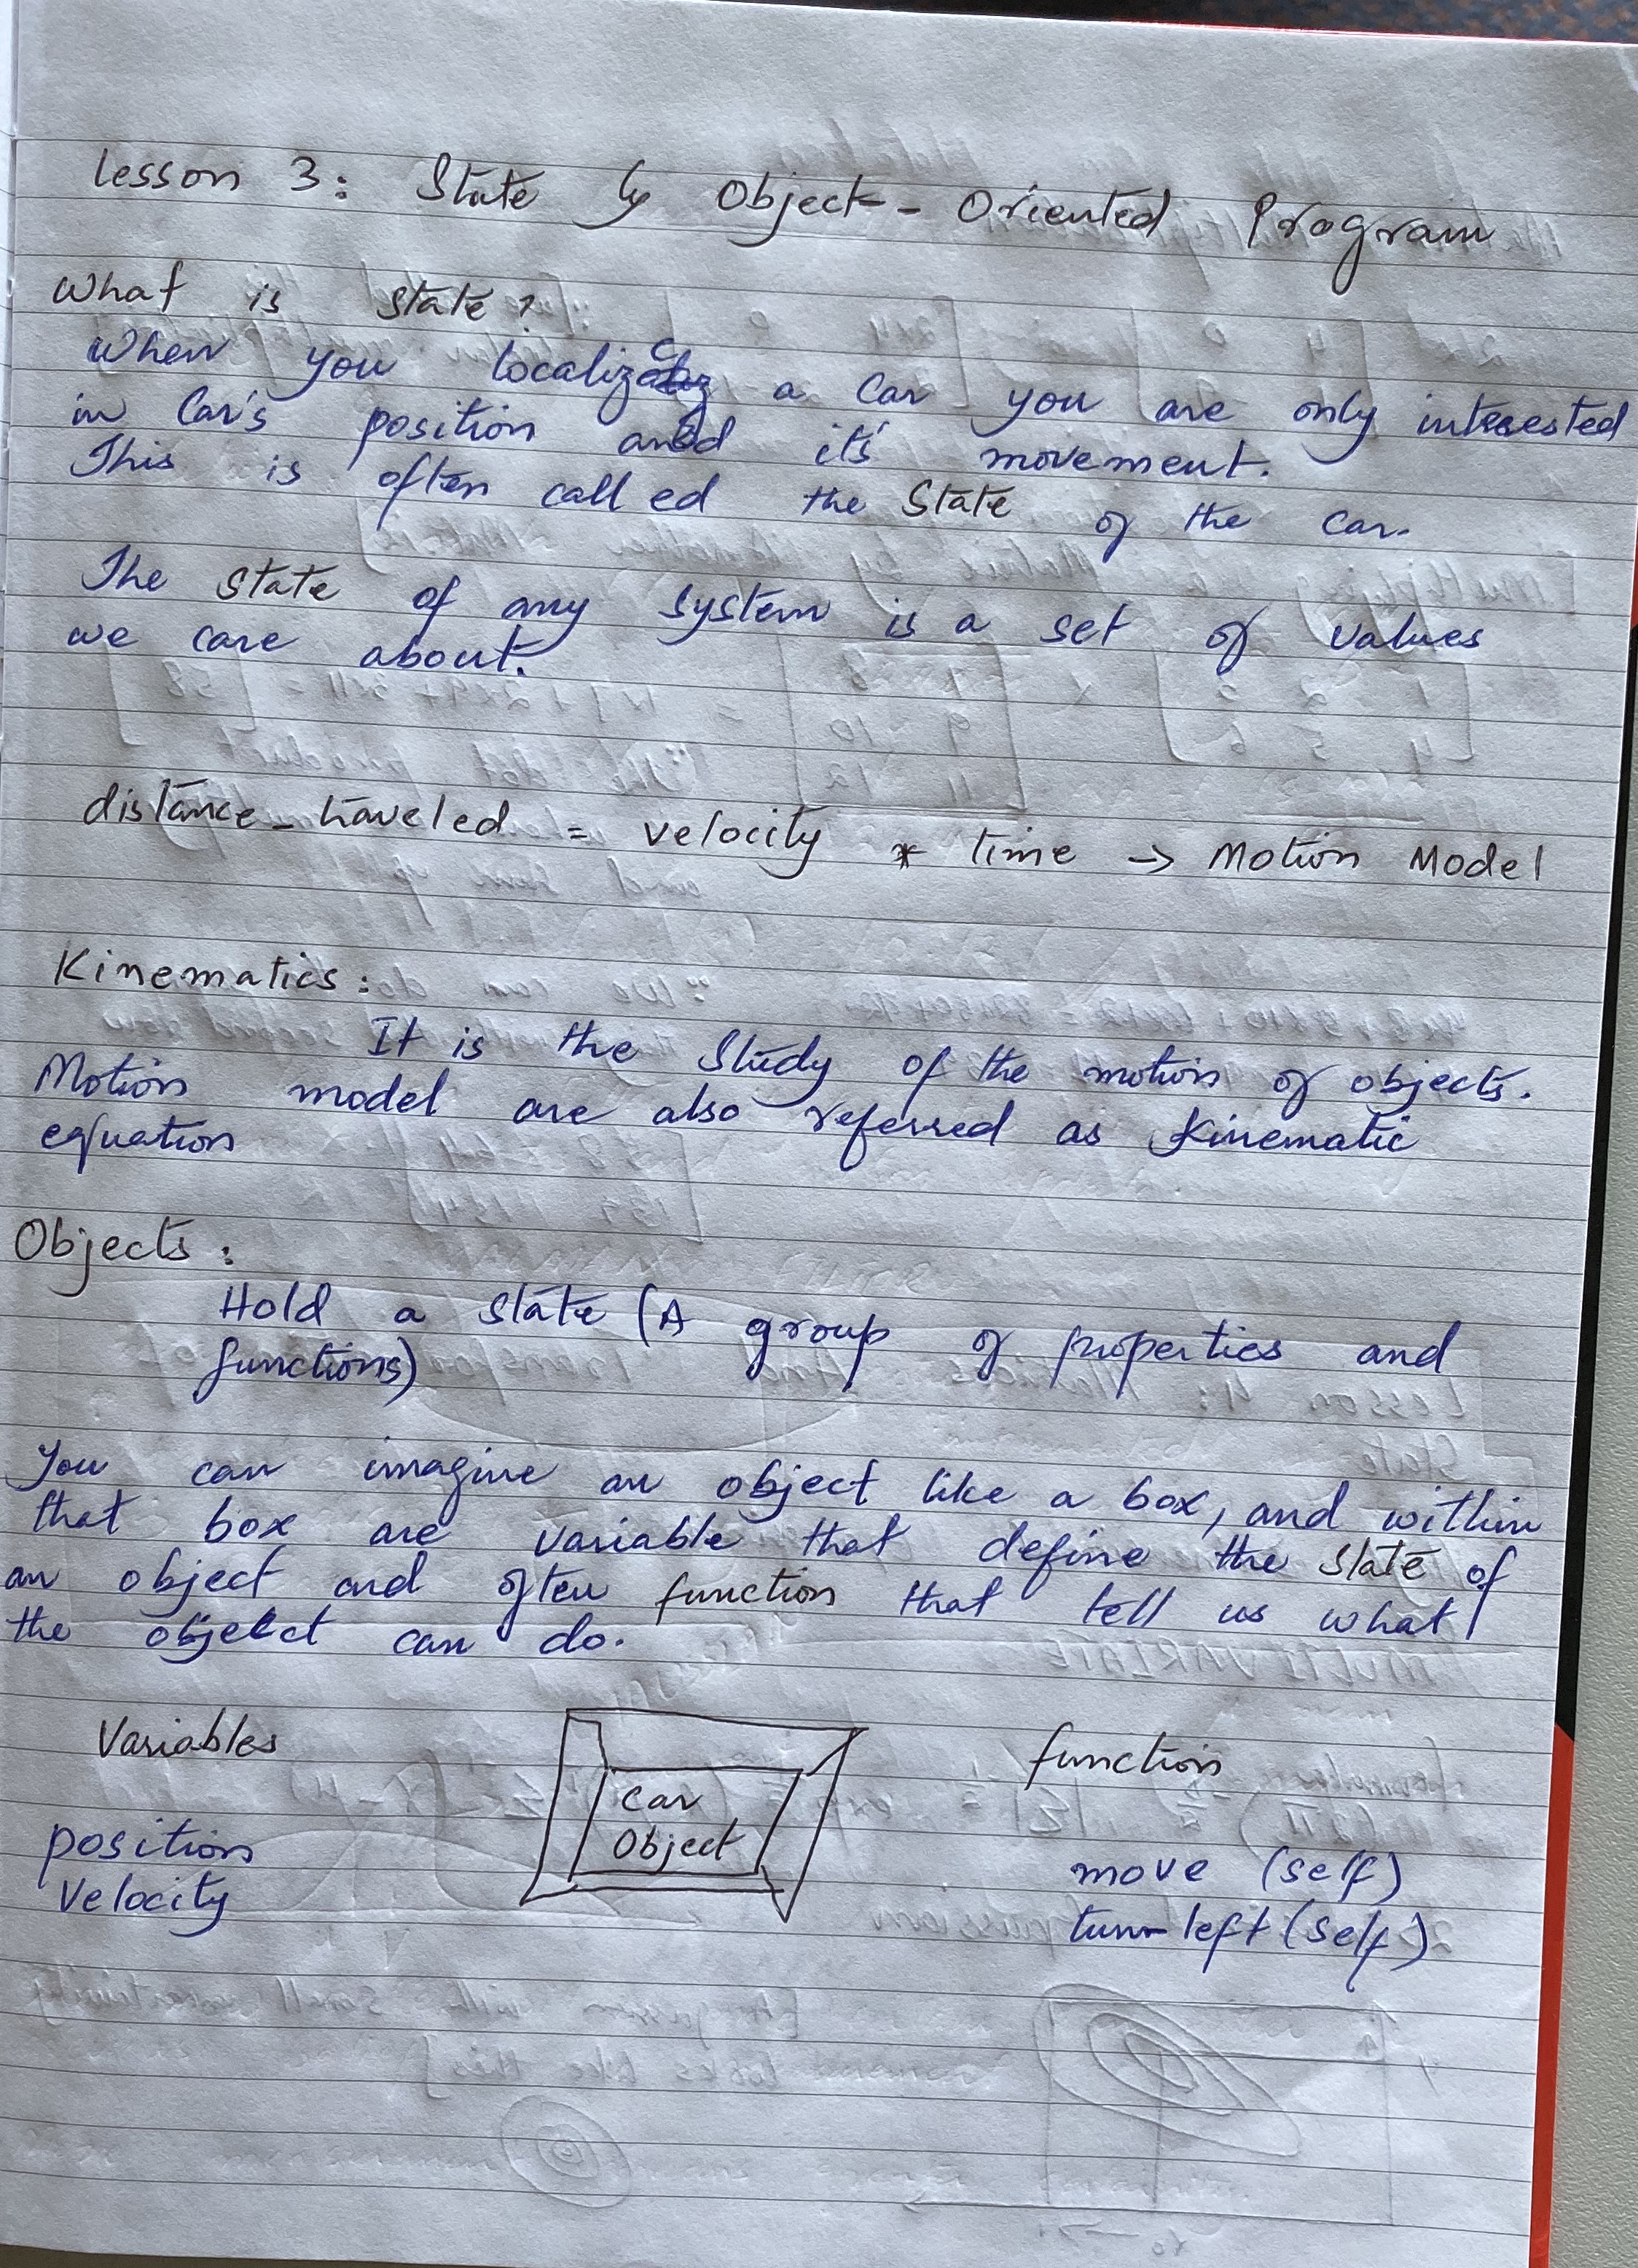 Lesson 3: State & Object-Oriented Program
What is state?
When you localize a car you are only interested
in Car's position and it's movement.
This is often called the State of the car.
The state of any system is a set of values
we care about.
distance_traveled = velocity * time → Motion Model
Kinematics:
It is the Study of the motion of objects.
Motion model are also referred as Kinematic
equation
Objects:
Hold a state (A group of properties and
functions)
You can imagine an object like a box, and within
that box are variable that define the state of
an object and often function that tell us what
the object can do.
Variables
position
velocity
Car
Object
function
move (self)
turn left (self)